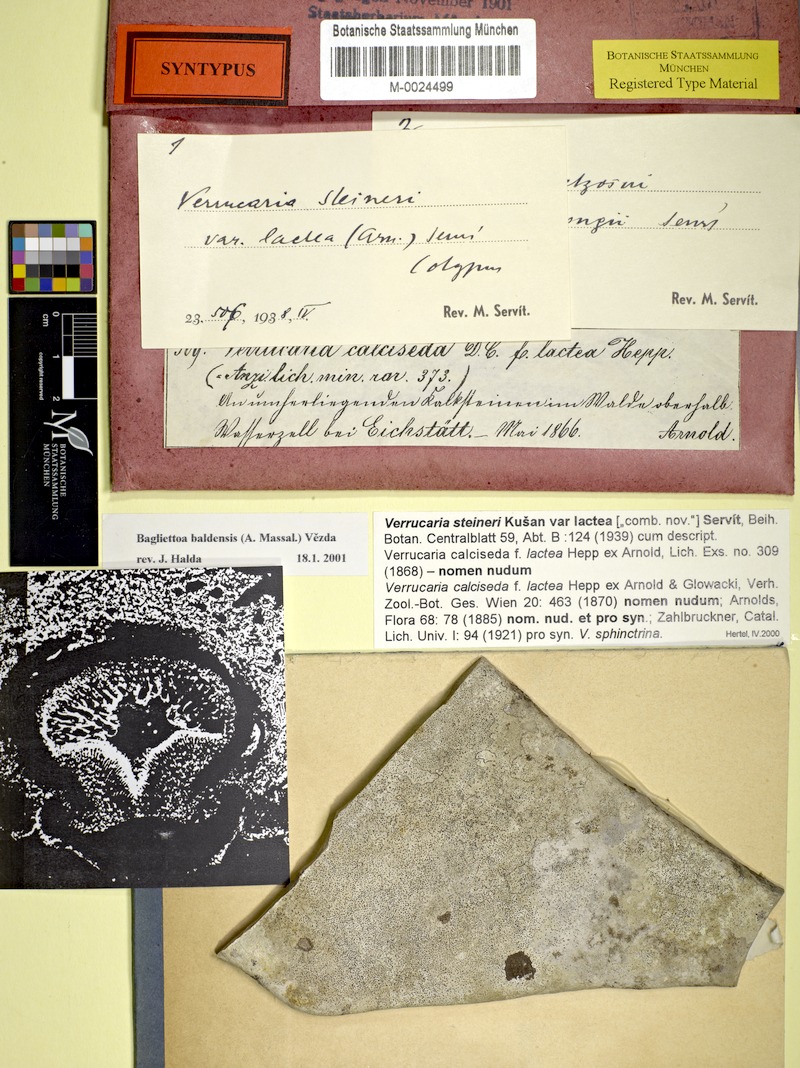 November 1901
Staatsherbarium
SYNTYPUS
Botanische Staatssammlung München
M-0024499
BOTANISCHE STAATSSAMMLUNG
MÜNCHEN
Registered Type Material
1
Verrucaria steineri
var. lactea (Arn.) Serv.
Cotypus
23.506, 1938, IV
Rev. M. Servít.
2
Rev. M. Servít.
Verrucaria calciseda D.C. f. lactea Hepp.
(= Anzi lich. min. rar. 373.)
An umherliegenden Kalksteinen im Walde oberhalb
Wasserzell bei Eichstätt. – Mai 1866. Arnold.
cm
0
1
2
copyright reserved
BOTANISCHE
STAATSSAMMLUNG
MÜNCHEN
Bagliettoa baldensis (A. Massal.) Vězda
rev. J. Halda 18.1. 2001
Verrucaria steineri Kušan var lactea [„comb. nov."] Servít, Beih.
Botan. Centralblatt 59, Abt. B :124 (1939) cum descript.
Verrucaria calciseda f. lactea Hepp ex Arnold, Lich. Exs. no. 309
(1868) – nomen nudum
Verrucaria calciseda f. lactea Hepp ex Arnold & Glowacki, Verh.
Zool.-Bot. Ges. Wien 20: 463 (1870) nomen nudum; Arnolds,
Flora 68: 78 (1885) nom. nud. et pro syn.; Zahlbruckner, Catal.
Lich. Univ. I: 94 (1921) pro syn. V. sphinctrina.
Hertel, IV.2000